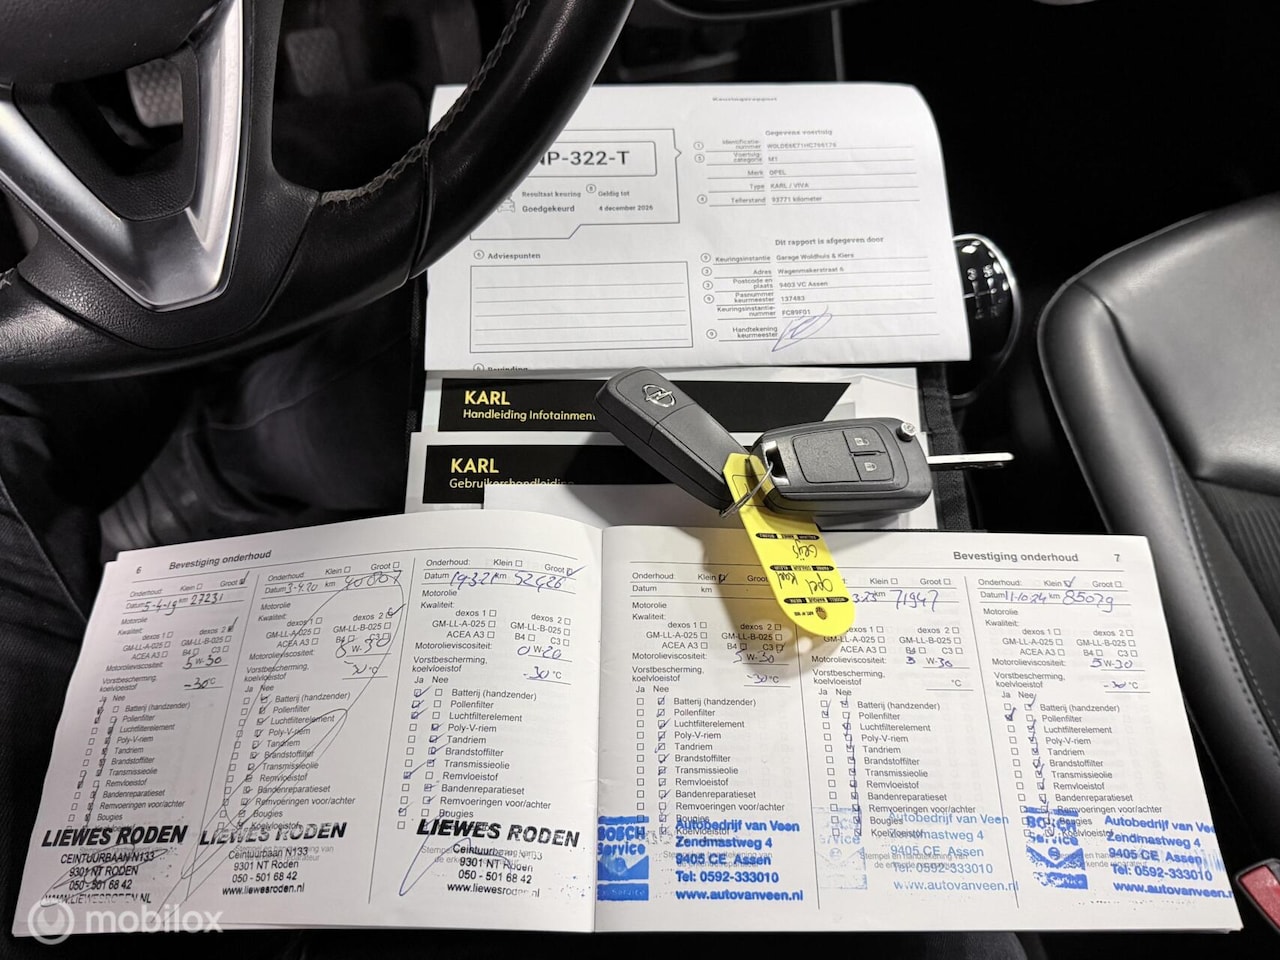 Keuringsrapport
NP-322-T
Resultaat keuring
Goedgekeurd
Geldig tot
4 december 2026
Adviespunten
Bevinding
Gegevens voertuig
Identificatie-
nummer
Voertuig-
categorie M1
Merk OPEL
Type KARL / VIVA
Tellerstand 93771 kilometer
Dit rapport is afgegeven door
Keuringsinstantie Garage Woldhuis & Kiers
Adres Wagenmakerstraat 6
Postcode en
plaats 9403 VC Assen
Pasnummer
keurmeester 137483
Keuringsinstantie-
nummer FC89F01
Handtekening
keurmeester
KARL
Handleiding Infotainment
KARL
Gebruikershandleiding
Opel Karl
Grijs
6 Bevestiging onderhoud
Onderhoud: Klein Groot
Datum 5-4-19 km 27231
Motorolie
Kwaliteit:
dexos 1 dexos 2
GM-LL-A-025 GM-LL-B-025
ACEA A3 B4 C3
Motorolieviscositeit:
5 W-30
Vorstbescherming,
koelvloeistof -30°C
Ja Nee
Batterij (handzender)
Pollenfilter
Luchtfilterelement
Poly-V-riem
Tandriem
Brandstoffilter
Transmissieolie
Remvloeistof
Bandenreparatieset
Remvoeringen voor/achter
Bougies
LIEWES RODEN
CEINTUURBAAN N133
9301 NT RODEN
050 - 501 68 42
WWW.LIEWESRODEN.NL
Onderhoud: Klein Groot
Datum 3-4-20 km 40807
Motorolie
Kwaliteit:
dexos 1 dexos 2
GM-LL-A-025 GM-LL-B-025
ACEA A3 B4 C3
Motorolieviscositeit:
5 W-30
Vorstbescherming,
koelvloeistof -30°C
Ja Nee
Batterij (handzender)
Pollenfilter
Luchtfilterelement
Poly-V-riem
Tandriem
Brandstoffilter
Transmissieolie
Remvloeistof
Bandenreparatieset
Remvoeringen voor/achter
Bougies
Koelvloeistof
LIEWES RODEN
Ceintuurbaan N133
9301 NT RODEN
050 - 501 68 42
www.liewesroden.nl
Onderhoud: Klein Groot
Datum 19-3-21 km 52426
Motorolie
Kwaliteit:
dexos 1 dexos 2
GM-LL-A-025 GM-LL-B-025
ACEA A3 B4 C3
Motorolieviscositeit:
0 W-20
Vorstbescherming,
koelvloeistof -30°C
Ja Nee
Batterij (handzender)
Pollenfilter
Luchtfilterelement
Poly-V-riem
Tandriem
Brandstoffilter
Transmissieolie
Remvloeistof
Bandenreparatieset
Remvoeringen voor/achter
Bougies
LIEWES RODEN
Ceintuurbaan N133
9301 NT RODEN
050 - 501 68 42
www.liewesroden.nl
Bevestiging onderhoud 7
Onderhoud: Klein Groot
Datum km
Motorolie
Kwaliteit:
dexos 1
GM-LL-A-025 GM-LL-B-025
ACEA A3 B4 C3
Motorolieviscositeit:
5 W-30
Vorstbescherming,
koelvloeistof -30°C
Ja Nee
Batterij (handzender)
Pollenfilter
Luchtfilterelement
Poly-V-riem
Tandriem
Brandstoffilter
Transmissieolie
Remvloeistof
Bandenreparatieset
Remvoeringen voor/achter
Bougies
Koelvloeistof
BOSCH
Service
Autobedrijf van Veen
Zendmastweg 4
9405 CE Assen
Tel: 0592-333010
www.autovanveen.nl
Klein Groot
km 71947
dexos 2
GM-LL-A-025 GM-LL-B-025
ACEA A3 B4 C3
Motorolieviscositeit:
5 W-30
Vorstbescherming,
koelvloeistof °C
Ja Nee
Batterij (handzender)
Pollenfilter
Luchtfilterelement
Poly-V-riem
Tandriem
Brandstoffilter
Transmissieolie
Remvloeistof
Bandenreparatieset
Remvoeringen voor/achter
Bougies
Koelvloeistof
Autobedrijf van Veen
Zendmastweg 4
9405 CE Assen
Tel: 0592-333010
www.autovanveen.nl
Onderhoud: Klein Groot
Datum 11-10-24 km 85079
Motorolie
Kwaliteit:
dexos 1 dexos 2
GM-LL-A-025 GM-LL-B-025
ACEA A3 B4 C3
Motorolieviscositeit:
5 W-30
Vorstbescherming,
koelvloeistof -30°C
Ja Nee
Batterij (handzender)
Pollenfilter
Luchtfilterelement
Poly-V-riem
Tandriem
Brandstoffilter
Transmissieolie
Remvloeistof
Bandenreparatieset
Remvoeringen voor/achter
Bougies
Koelvloeistof
Autobedrijf van Veen
Zendmastweg 4
9405 CE Assen
Tel: 0592-333010
www.autovanveen.nl
mobilox